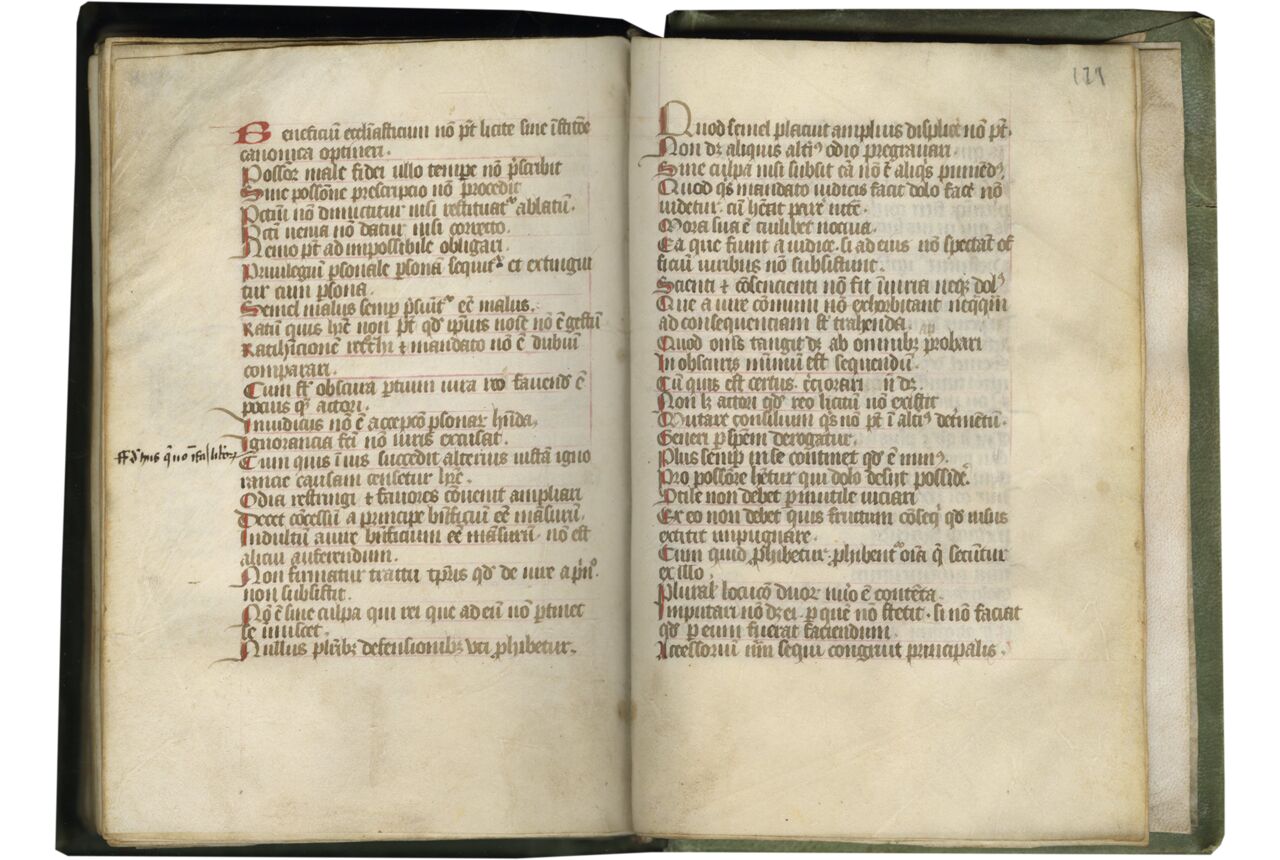 Beneficiũ eccl̃iasticum nõ põt licite sine ĩstitõe
canonica optineri.
Possor male fidei ullo tempe nõ p̃scribit
Sine possõne prescripcio nõ procedit
Pctũm nõ dimictitur nisi restituatᷣ ablatũ.
Pctĩ uenia nõ datur nisi correcto.
Nemo põt ad impossibile obligari.
Priuilegiũ psonale psonã sequitᷣ et extingui
tur cum psona.
Semel malus semp p̃sũitᷣ eẽ malus.
Ratũ quis hẽre non põt qd̛ ipius noĩe nõ ẽ gestũ
Ratihĩcionẽ ret̃hi ⁊ mandato nõ ẽ dubiũ
comparari.
Cum st̃ obscura ptium iura reo fauend̛ ẽ
pocius qᷓ actori.
In iudicijs nõ ẽ accepcõ psonar hñda.
Ignorancia fc̃i nõ iuris excusat.
Cum quis ĩ ius succedit alterius iustã igno
rancie causam censetur hr̃e.
Odia restringi ⁊ fauores cõuenit ampliari
Decet cõcessũ a principe bñficiũ eẽ mãsurũ.
Indultũ a iure bñficium eẽ mãsurũ. nõ est
alicui auferendum.
Non firmatur tractu tp̃ris qd̛ de iure a p̃nᵒ.
non subsistit.
Nõ ẽ sine culpa qui rei que ad eũ nõ ptinet
se miscet.
Nullus plĩbꝫ defensionibꝫ vti phibetur.
129
Quod semel placuit amplius displice nõ põt.
Non dꝫ aliquis altĩᵒ odio pregrauari.
Sine culpa nisi subsit cã nõ ẽ aliqs puniedꝰ.
Quod qs mandato iudicis facit dolo facẽ nõ
uidetur. cũ hẽat parẽ ncẽ.
Mora sua ẽ cuilibet nociua.
Ea que fiunt a iudice. si ad eius nõ spectat̃ of
ficiũ uiribus nõ subsistunt.
Scienti ⁊ cõsencienti nõ fit ĩniuria neqꝫ dolꝰ
Que a iure cõmuni nõ exhorbitant neq̃q̃m
ad consequenciam st̃ trahenda.
Quod oms̃ tangit dꝫ ab omnibꝫ ap probari
In obscuris minimũ est sequendũ.
Cũ quis est certus. cc̃iorari ñ dꝫ.
Non lꝫ actori qd̛ reo licitũ nõ existit
Mutare consilium qs nõ põt ĩ altĩᵒ detrimẽtũ.
Generi p spem̃ derogatur.
Plus semp in se continet qd̛ ẽ minꝰ.
Pro possõre hẽtur qui dolo desijt possidẽ.
Vtile non debet p inutile uiciari
Ex eo non debet quis fructum cõseq̃ qd̛ nisus
extitit impugnare.
Cum quid phibetur. phibentᷣ oĩa q̃ secuntur
ex illo.
Plural̛ locucõ duor nũo ẽ contẽta.
Imputari nõ dꝫ ei. p quẽ nõ stetit. si nõ faciat
qd̛ p eum fuerat faciendum.
Accessoriũ nãm sequi congruit principalis.